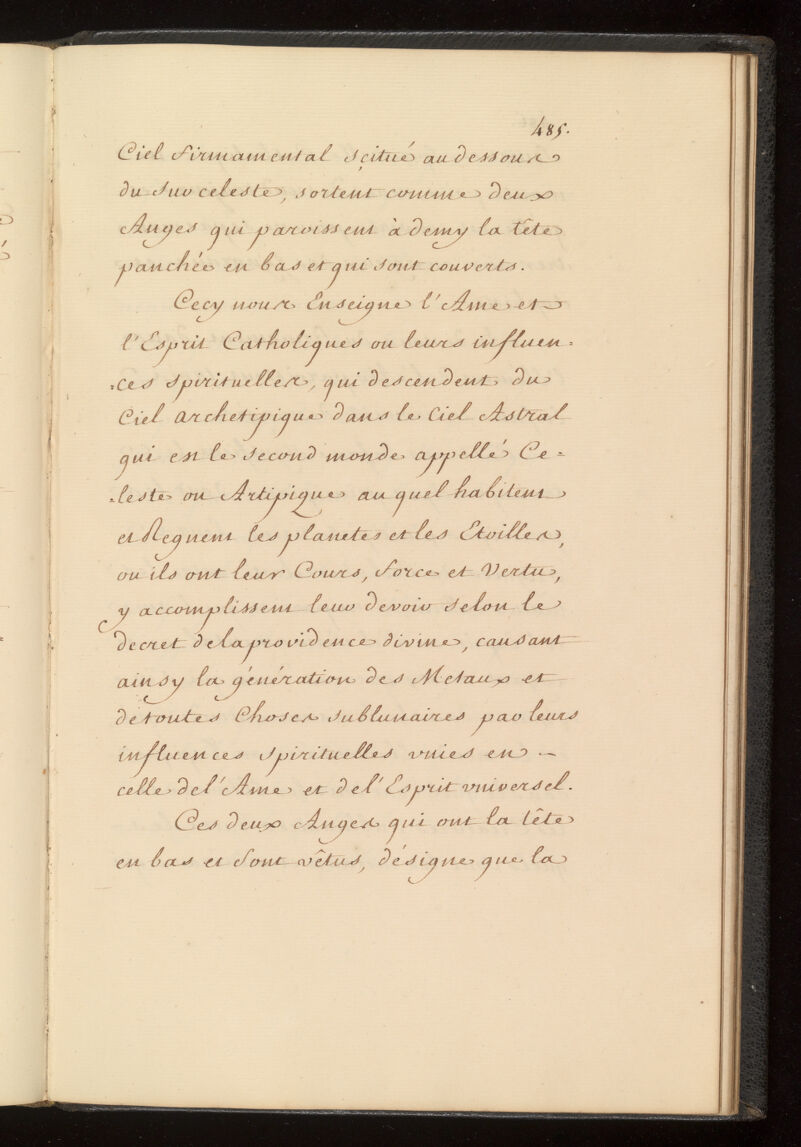 485.
Ciel Firmamental scitué au dessous
du suc celeste, sortent comme deux
Anges qui paroissent à demy la tête
panchée en bas et qui sont couverts.
Cecy nous Enseigne l'Ame et
l'Esprit Catholiques ou leurs influen=
=ces spirituelles, qui descendent du
Ciel Archetipique dans le Ciel Astral
qui est le second monde appellé Ce=
=leste ou Artipique au quel habitent
et Regnent les planetes et les Etoilles,
ou ils ont leur Cours, force et Vertu,
y accomplissent leur devoir selon le
decret de la providence divine, causant
ainsy la génération des Metaux et
de toutes Choses sublunaires par leurs
influences spirituelles vnies en -
celle de l'Ame et de l'Esprit vniversel.
Ces deux Anges qui ont la tête
en bas et sont vêtus, désigne que la